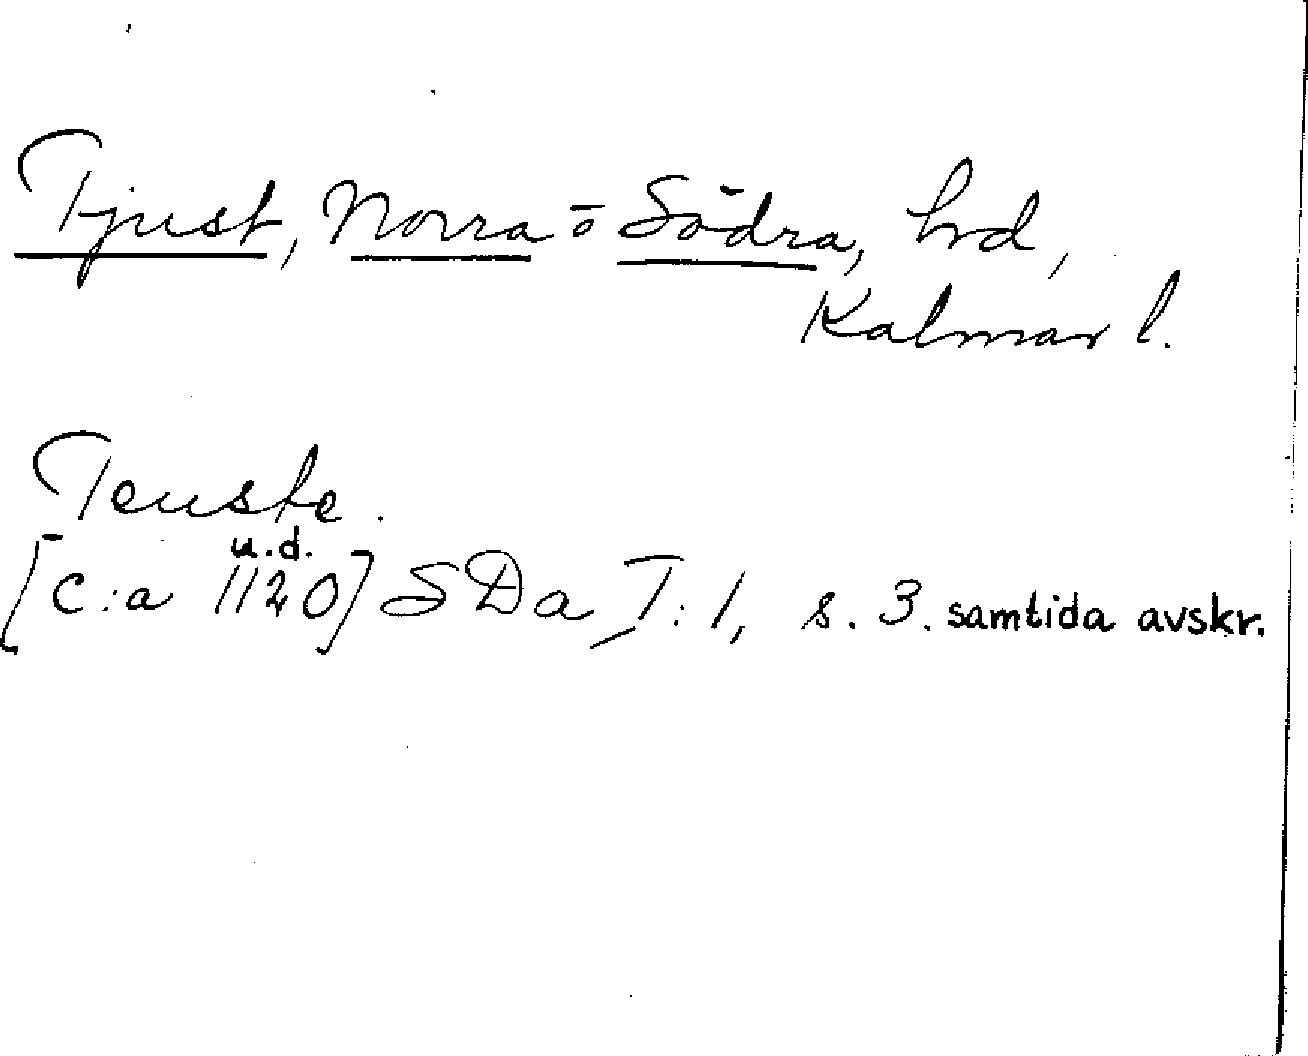 Tjust, Norra o Södra, hd,
Kalmar l.
Teuste.
u.d.
[c:a 1120] SDa, I:1, s. 3. samtida avskr.